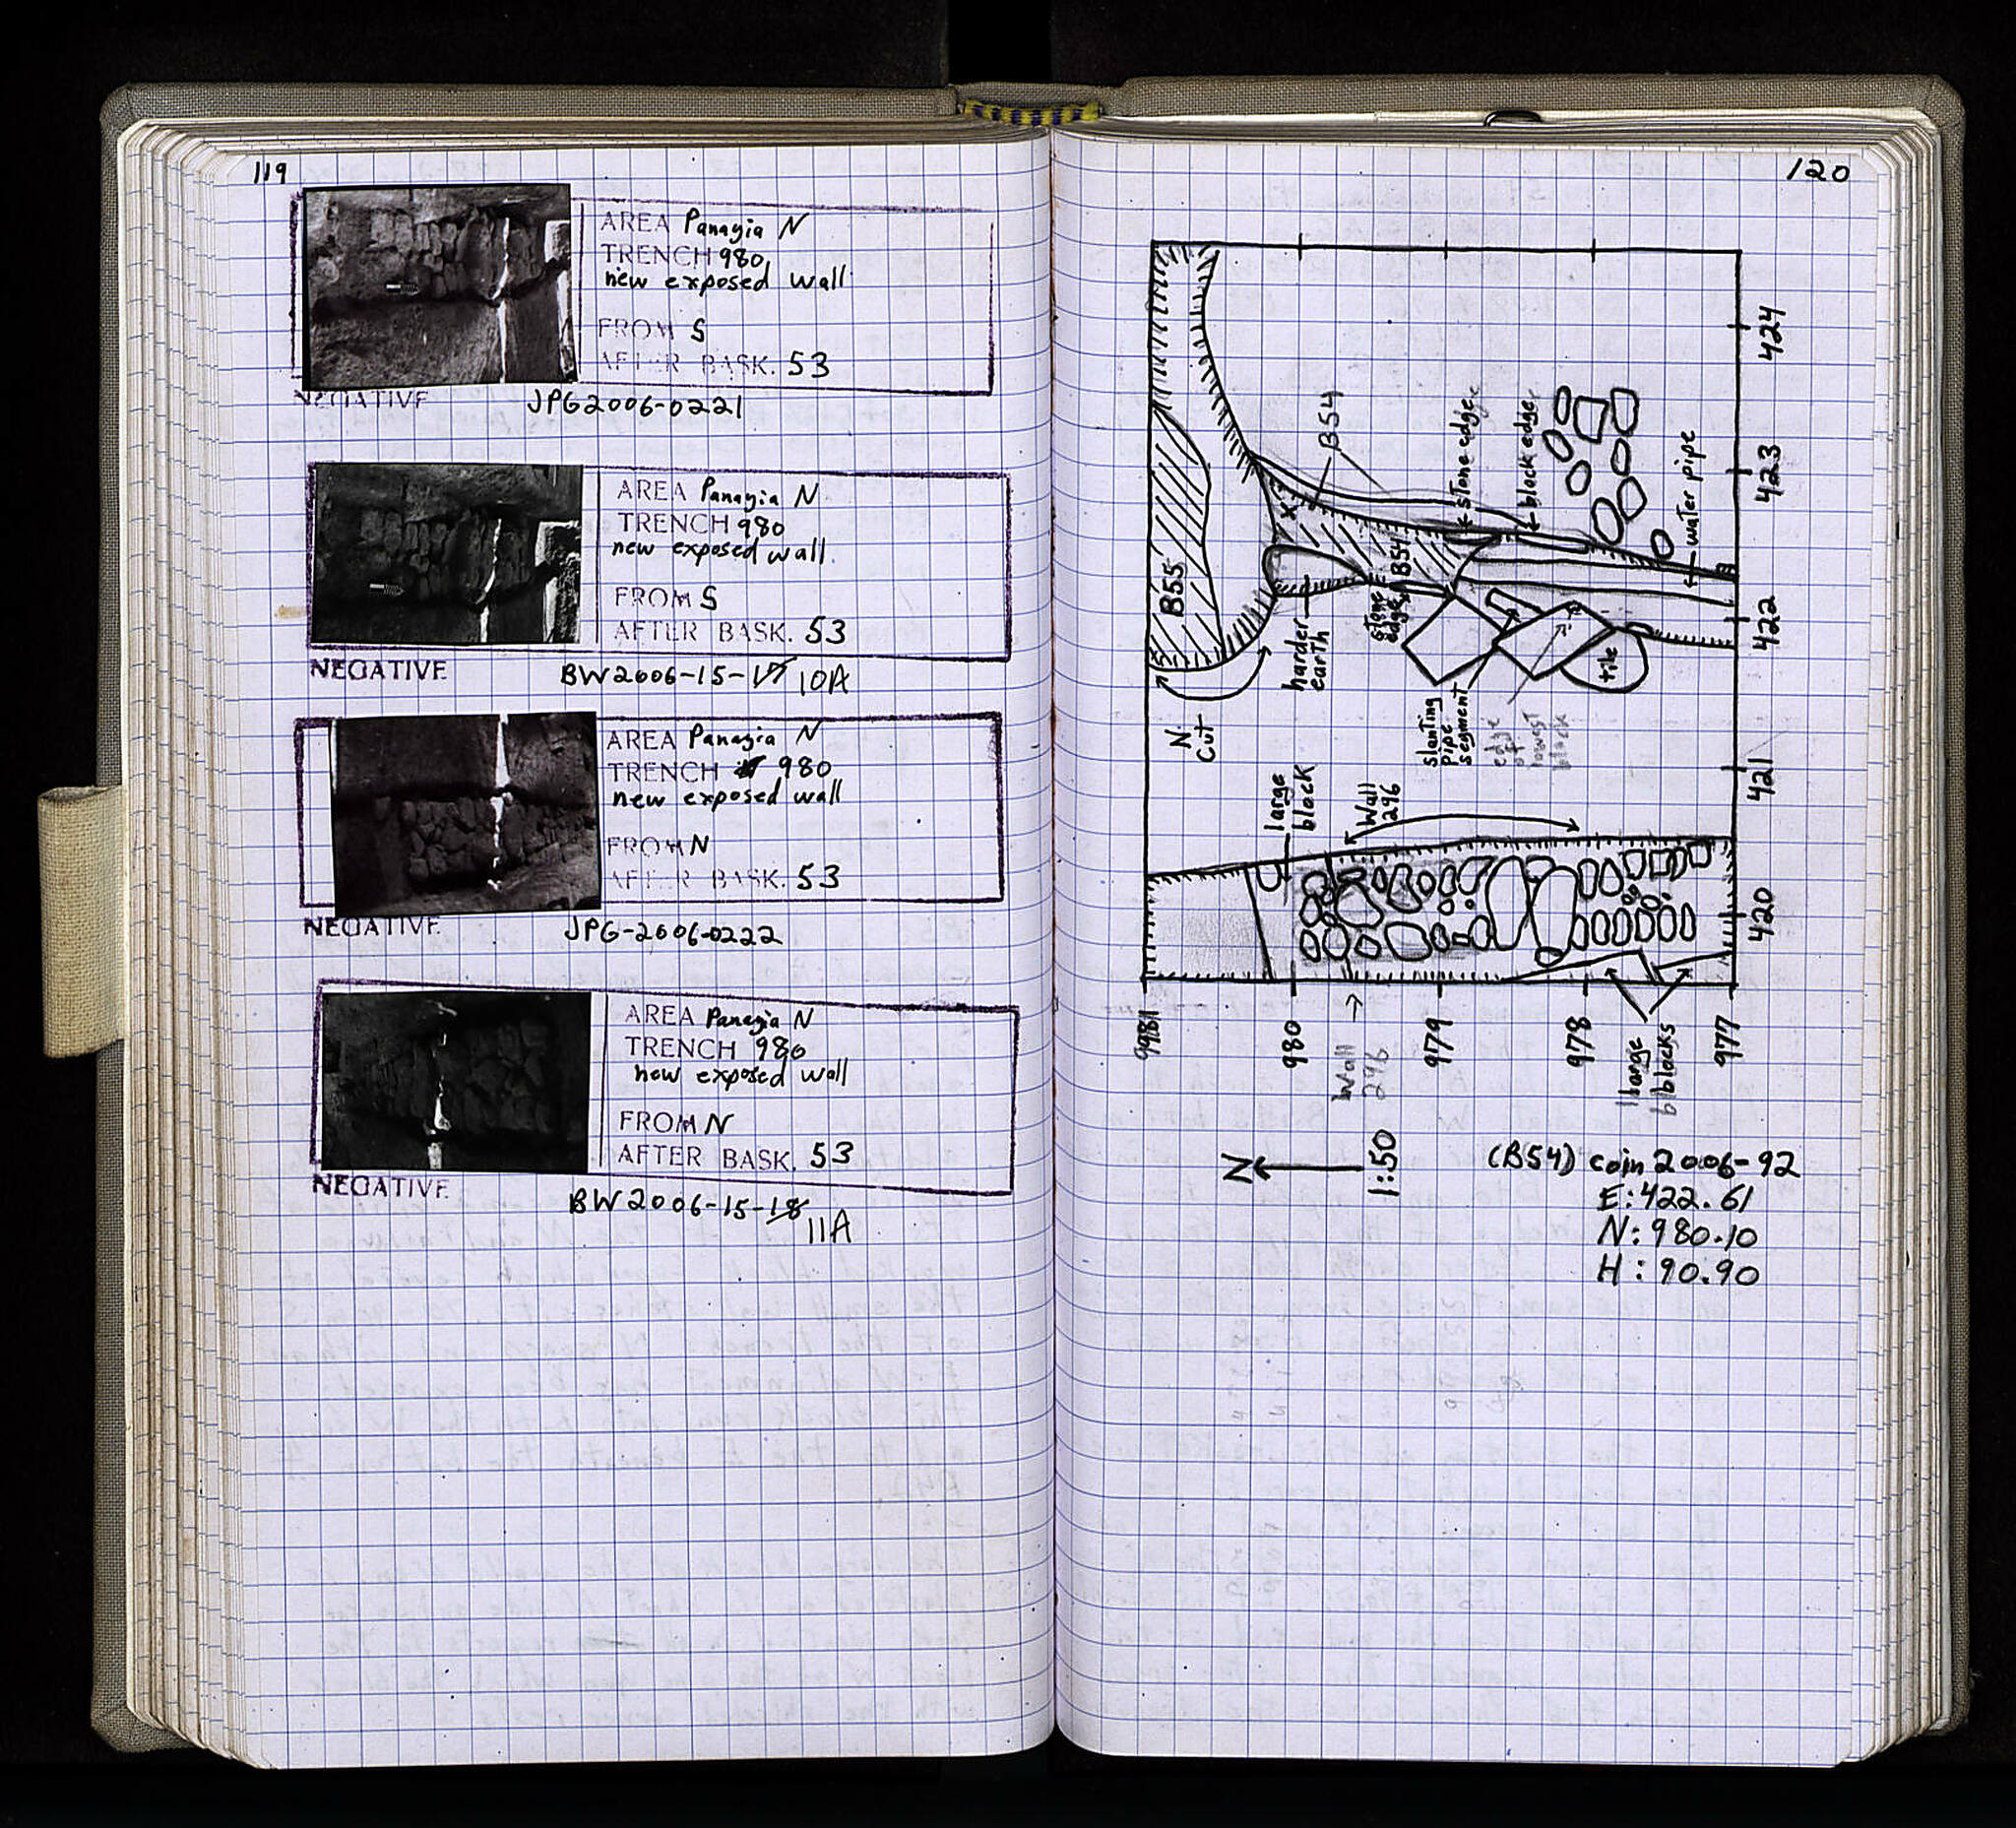 119
AREA Panayia N
TRENCH 980
new exposed wall
FROM S
AFTER BASK. 53
NEGATIVE JPG2006-0221
AREA Panayia N
TRENCH 980
new exposed wall
FROM S
AFTER BASK. 53
NEGATIVE BW2006-15-17 10A
AREA Panayia N
TRENCH 980
new exposed wall
FROM N
AFTER BASK. 53
NEGATIVE JPG-2006-0222
AREA Panayia N
TRENCH 980
new exposed wall
FROM N
AFTER BASK. 53
NEGATIVE BW2006-15-18
11A
120
424
423
422
421
420
B55
X?
B54
B54
stone edge
block edge
water pipe
N
cut
harder
earth
stone
edge
tile
slanting
pipe
segment
edge
of
lowest
block
large
block
Wall
296
9981
980
979
978
977
Wall
296
llarge
bblocks
N
1:50
(B54) coin 2006-92
E: 422.61
N: 980.10
H: 90.90